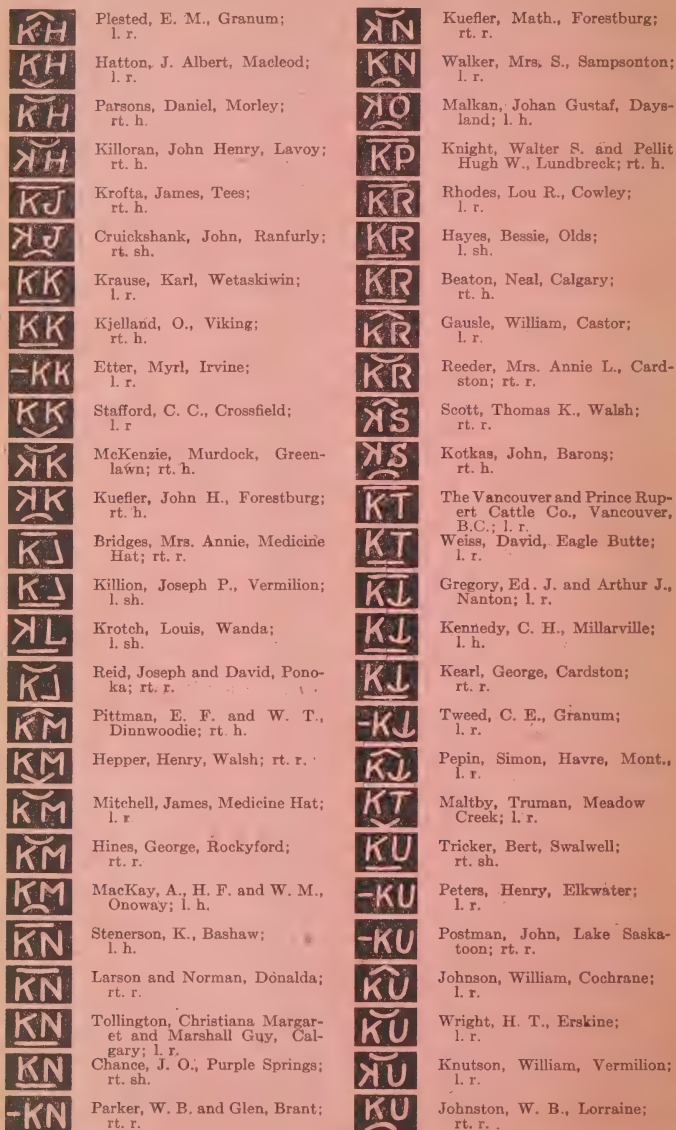 Plested, E. M., Granum;
l. r.
Hatton, J. Albert, Macleod;
l. r.
Parsons, Daniel, Morley;
rt. h.
Killoran, John Henry, Lavoy;
rt. h.
Krofta, James, Tees;
rt. h.
Cruickshank, John, Ranfurly;
rt. sh.
Krause, Karl, Wetaskiwin;
l. r.
Kjelland, O., Viking;
rt. h.
Etter, Myrl, Irvine;
l. r.
Stafford, C. C., Crossfield;
l. r
McKenzie, Murdock, Green-
lawn; rt. h.
Kuefler, John H., Forestburg;
rt. h.
Bridges, Mrs. Annie, Medicine
Hat; rt. r.
Killion, Joseph P., Vermilion;
l. sh.
Krotch, Louis, Wanda;
l. sh.
Reid, Joseph and David, Pono-
ka; rt. r.
Pittman, E. F. and W. T.,
Dinnwoodie; rt. h.
Hepper, Henry, Walsh; rt. r.
Mitchell, James, Medicine Hat;
l. r
Hines, George, Rockyford;
rt. r.
MacKay, A., H. F. and W. M.,
Onoway; l. h.
Stenerson, K., Bashaw;
l. h.
Larson and Norman, Donalda;
rt. r.
Tollington, Christiana Margar-
et and Marshall Guy, Cal-
gary; l. r.
Chance, J. O., Purple Springs;
rt. sh.
Parker, W. B. and Glen, Brant;
rt. r.
Kuefler, Math., Forestburg;
rt. r.
Walker, Mrs. S., Sampsonton;
l. r.
Malkan, Johan Gustaf, Days-
land; l. h.
Knight, Walter S. and Pellit
Hugh W., Lundbreck; rt. h.
Rhodes, Lou R., Cowley;
l. r.
Hayes, Bessie, Olds;
l. sh.
Beaton, Neal, Calgary;
rt. h.
Gausle, William, Castor;
l. r.
Reeder, Mrs. Annie L., Card-
ston; rt. r.
Scott, Thomas K., Walsh;
rt. r.
Kotkas, John, Barons;
rt. h.
The Vancouver and Prince Rup-
ert Cattle Co., Vancouver,
B.C.; l. r.
Weiss, David, Eagle Butte;
l. r.
Gregory, Ed. J. and Arthur J.,
Nanton; l. r.
Kennedy, C. H., Millarville;
l. h.
Kearl, George, Cardston;
rt. r.
Tweed, C. E., Granum;
l. r.
Pepin, Simon, Havre, Mont.,
l. r.
Maltby, Truman, Meadow
Creek; l. r.
Tricker, Bert, Swalwell;
rt. sh.
Peters, Henry, Elkwater;
l. r.
Postman, John, Lake Saska-
toon; rt. r.
Johnson, William, Cochrane;
l. r.
Wright, H. T., Erskine;
l. r.
Knutson, William, Vermilion;
l. r.
Johnston, W. B., Lorraine;
rt. r.